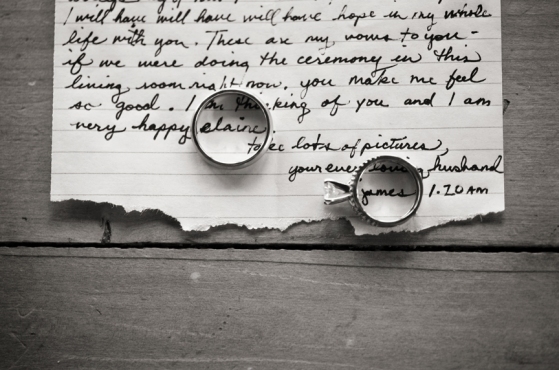 I will have will have will have hope in my whole
life with you. These are my vows to you -
if we were doing the ceremony in this
living room right now. you make me feel
so good. I am thinking of you and I am
very happy elaine.
lots of pictures,
your ever loving husband
james 1:20AM